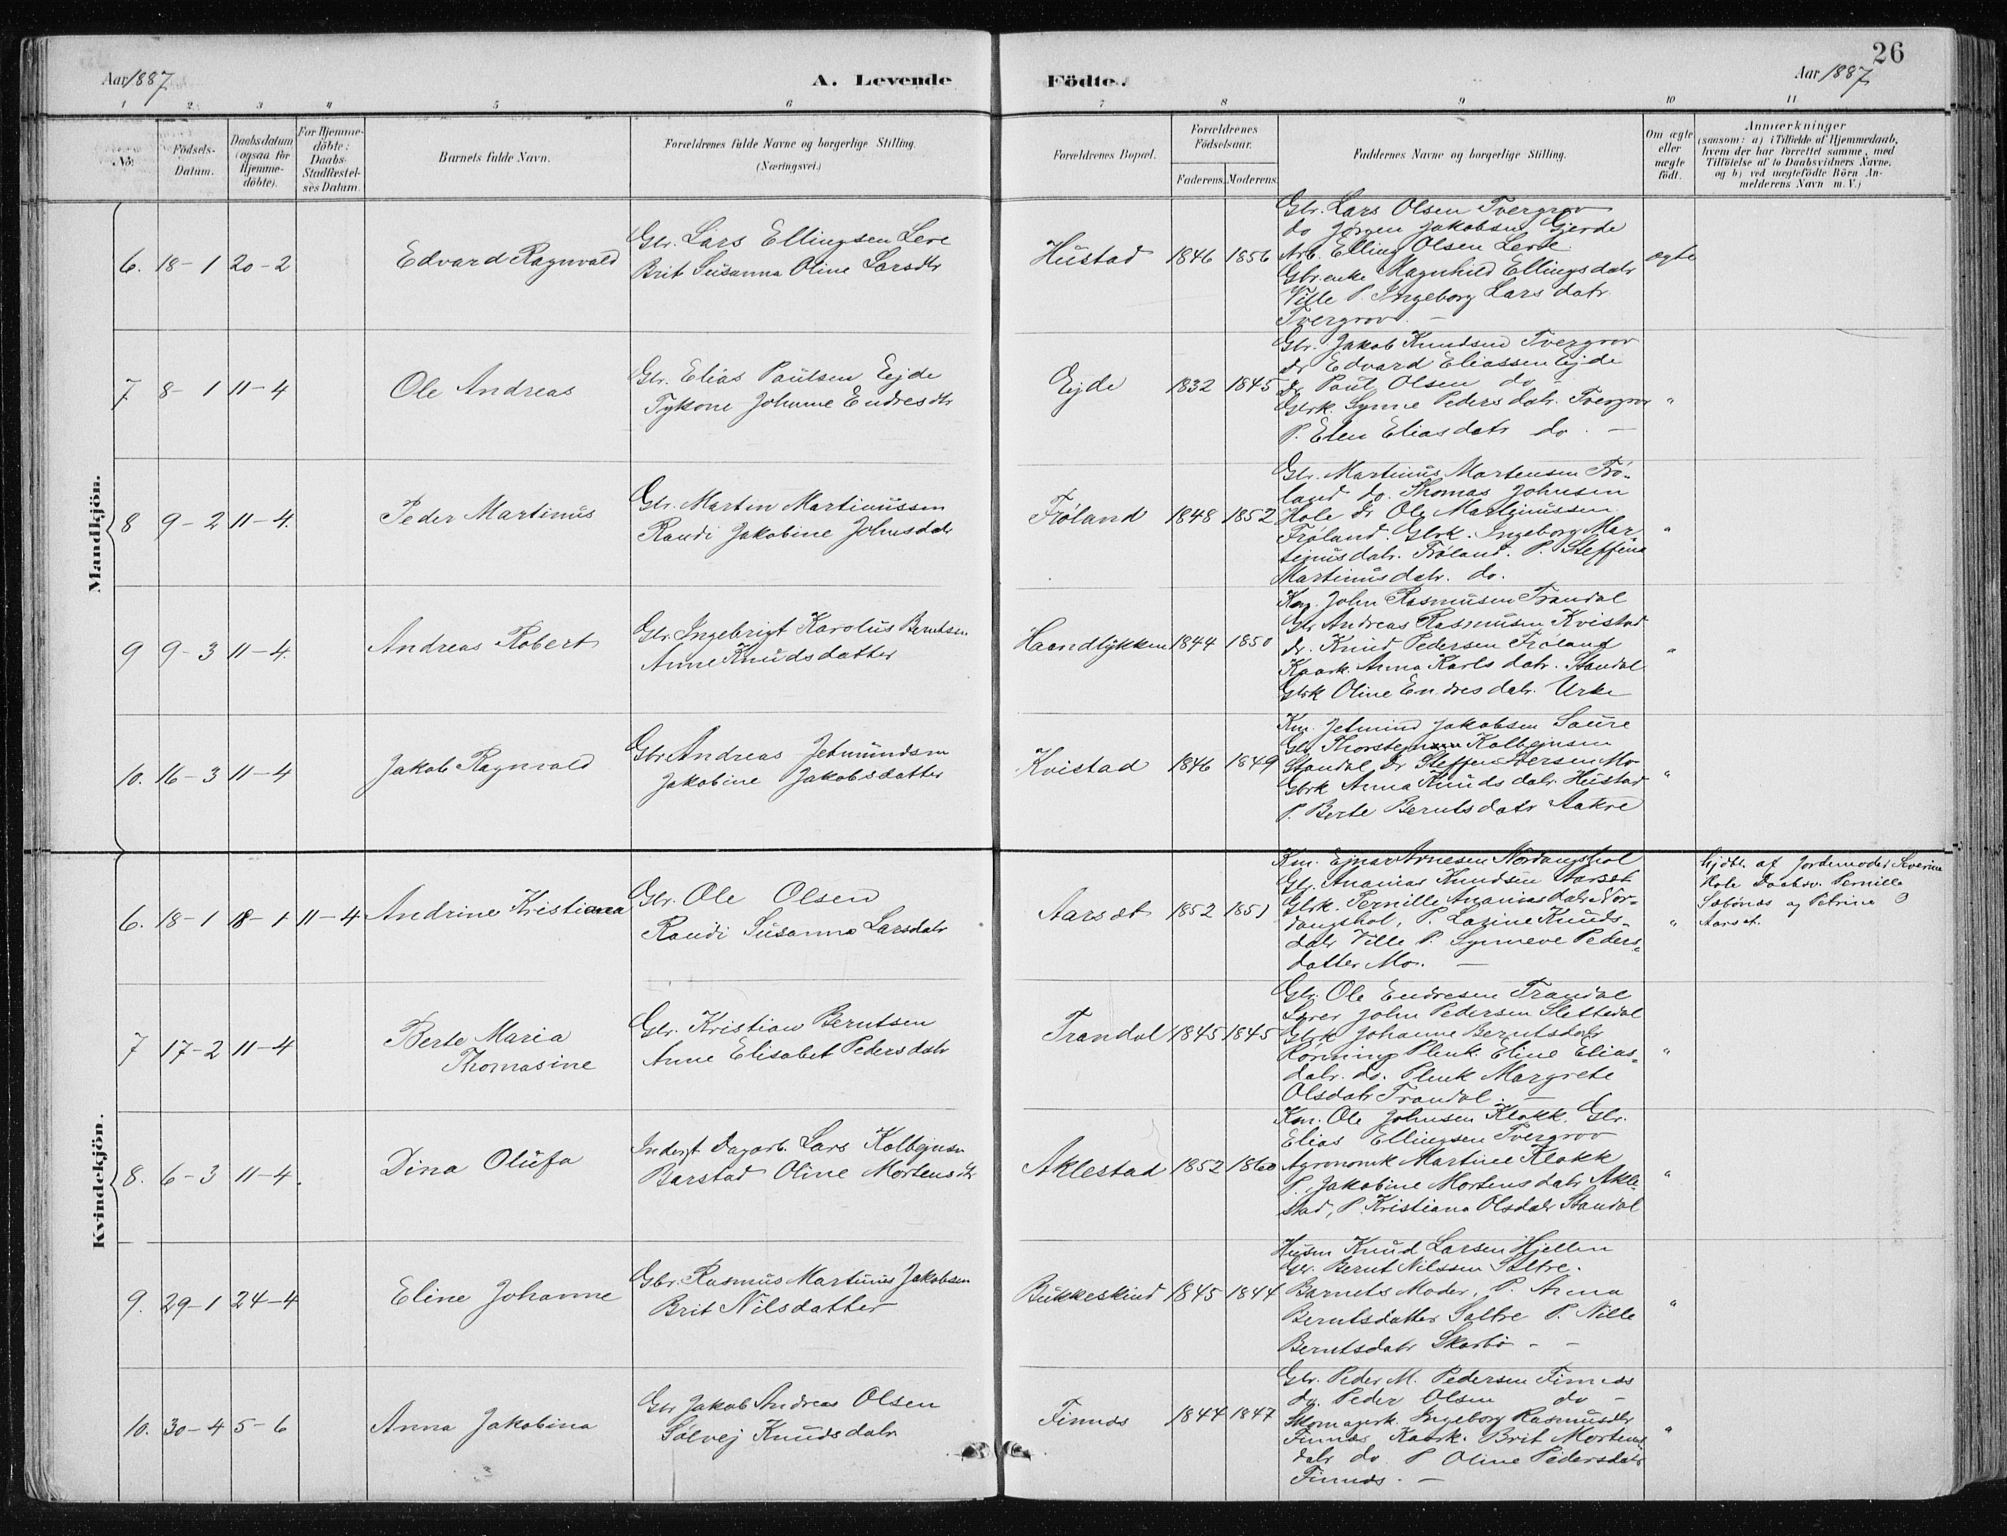 26
Aar 1887
A. Levende Födte.
Aar 1887
1 2 3 4 5 6 7 8 9 10 11
No.
Födsels-
Datum.
Daabsdatum
(ogsaa for
Hjemme-
döbte).
For Hjemme-
döbte:
Daabs-
Stadfæstel-
ses Datum.
Barnets fulde Navn.
Forældrenes fulde Navne og borgerlige Stilling.
(Næringsvei.)
Forældrenes Bopæl.
Forældrenes
Födselsaar.
Faderens. Moderens.
Faddernes Navne og borgerlige Stilling.
Om ægte
eller
uægte
födt.
Anmærkninger
(saasom: a) i Tilfælde af Hjemmedaab,
hvem der har forrettet samme, med
Tilföielse af to Daabsvidners Navne,
og b) ved uægtefödte Börn An-
melderens Navn m. V.)
Mandkjön.
6. 18-1 20-2
Edvard Ragnvald
Gbr. Lars Ellingsen Leve
Brit Susanna Oline Larsdtr
Hustad
1846 1856
Gbr. Lars Olsen Tvergrov
do Jørgen Jakobsen Gjerde
Arb. Elling Olsen Leve
Gbr.enke Magnhild Ellingsdatr
Ville P. Ingeborg Larsdatr.
Tvergrov. —
ægte
7 8-1 11-4
Ole Andreas
Gbr. Elias Paulsen Ejde
Tykone Johanne Endresdtr
Ejde
1832 1845
Gbr. Jakob Knudsen Tvergrov
do Edvard Eliassen Ejde
do Paul Olsen do
Gbrk. Synne Pedersdatr. Tvergrov
P. Elen Eliasdatr do. —
"
8 9-2 11-4.
Peder Martinus
Gbr. Martin Martinussen
Randi Jakobine Johnsdatr
Frøland
1848 1852
Gbr. Martinus Martensen Frø-
land do. Thomas Johnsen
Hole dr Ole Martinussen
Frøland. Gbrk. Ingeborg Mar-
tinusdatr. Frøland. P. Steffine
Martinusdatr. do.
"
9 9-3 11-4.
Andreas Robert
Gbr. Ingebrigt Karolus Berntsen
Anne Knudsdatter
Haandlykken
1844 1850
Kaar. John Rasmusen Trandal
Gbr Andreas Rasmusen Kvistad
dr. Knud Pedersen Frøland
Kaark. Anna Karlsdatr. Standal
Gbrk Oline Endresdatr. Urke
"
10. 16-3 11-4
Jakob Ragnvald
Gbr. Andreas Jetmundsen
Jakobine Jakobsdatter
Kvistad
1846 1849
Km. Jetmund Jakobsen Saure
Gbr. Thorstein Kolbejnsen
Standal dr Steffen Iversen Mo
Gbrk Anna Knudsdatr. Hustad
P. Berte Berntsdatr Aakre
"
Kvindekjön.
6. 18-1 18-1 11-4
Andrine Kristianea
Gbr. Ole Olsen
Randi Susanna Larsdatr
Aarset
1852 1851
Km. Ejnar Arnesen Nordangshol
Gbr. Ananias Knudsen Aarset
Gbrk. Pernille Ananiasdatr Nor-
dangshol, P. Lasine Knuds-
datr Ville P. Synneve Peders-
datter Mo. —
"
hjdbt. af Jordemoder Severine
Hole Daabsv. Pernille
Sæbønes og Petrine
Aarset.
7 17-2 11-4
Berte Maria
Thomasine
Gbr. Kristian Berntsen
Anne Elisabet Pedersdatr
Trandal
1845 1845
Gbr. Ole Endresen Trandal
Lærer John Pedersen Slettedal
Gbrk Johanne Berntsdatr
Rørnning Plenk. Eline Elias-
datr. do. Plenk Margrete
Olsdatr Trandal. —
"
8. 6-3 11-4.
Dina Olufa
Inderst Dagarb. Lars Kolbejnsn
Barstad Oline Mortensdtr
Aklestad
1852 1860
Km. Ole Johnsen Klokk. Gbr.
Elias Ellingsen Tvergrov
Agronomk Martine Klokk
P. Jakobine Mortensdatr Akle-
stad, P. Kristiana Olsdatr Standal
"
9. 29-1 24-4
Eline Johanne
Gbr. Rasmus Martinus Jakobsen
Brit Nilsdatter
Bukkeskind
1845 1844
Husm Knud Larsen Hjellen
Gbr. Bernt Nilssen Saltre.
Barnets Moder, P. Anna
Berntsdatter Saltre P. Nille
Berntsdatr Skarbø - -
"
10. 30-4 5-6
Anna Jakobina
Gbr Jakob Andreas Olsen
Sølvej Knudsdatr
Finnes
1844 1847
Gbr. Peder M. Pedersen Finnes
do. Peder Olsen do -
Skomagerk. Ingeborg Rasmusdtr
Finnes Kaark. Brit Mortens
datr do P Oline Pedersdatr
Finnes. —
"